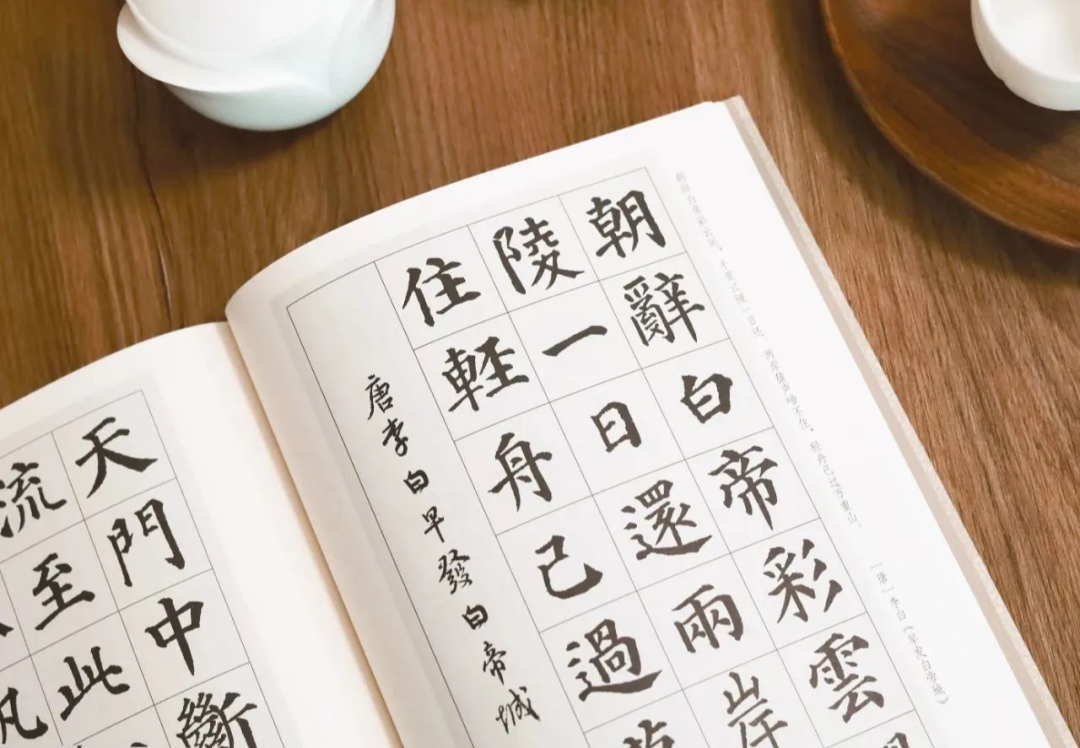 朝辞白帝彩云间，千里江陵一日还。两岸猿声啼不住，轻舟已过万重山。
〔唐〕李白《早发白帝城》
朝辭白帝彩雲
陵一日還兩岸
住軽舟已過
唐李白早發白帝城
天門中斷
流至此
帆